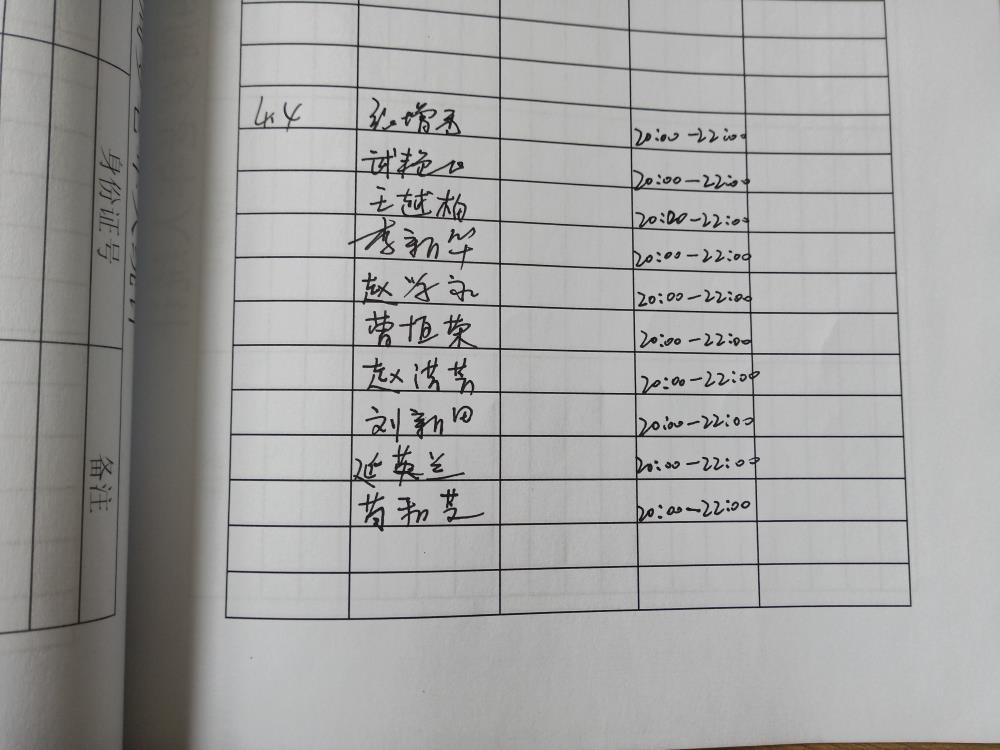 身份证号
备注
4.4 张增秀 20:00-22:00
20:00-22:00
王越柏 20:00-22:00
李新华 20:00-22:00
赵学永 20:00-22:00
曹恒荣 20:00-22:00
赵洪芳 20:00-22:00
刘新田 20:00-22:00
延英兰 20:00-22:00
20:00-22:00